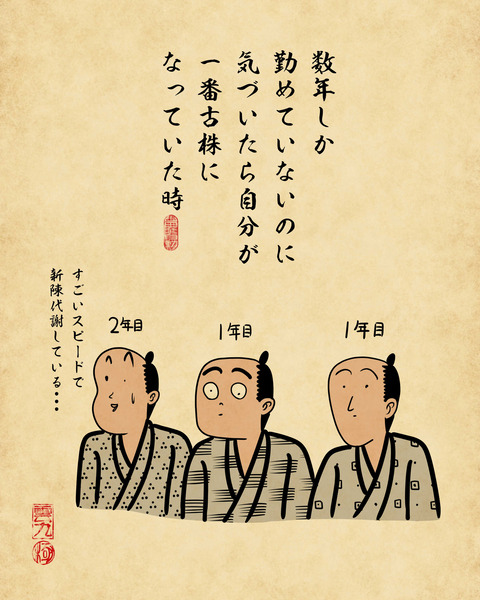 数年しか
勤めていないのに
気づいたら自分が
一番古株に
なっていた時
1年目
1年目
2年目
すごいスピードで
新陳代謝している・・・